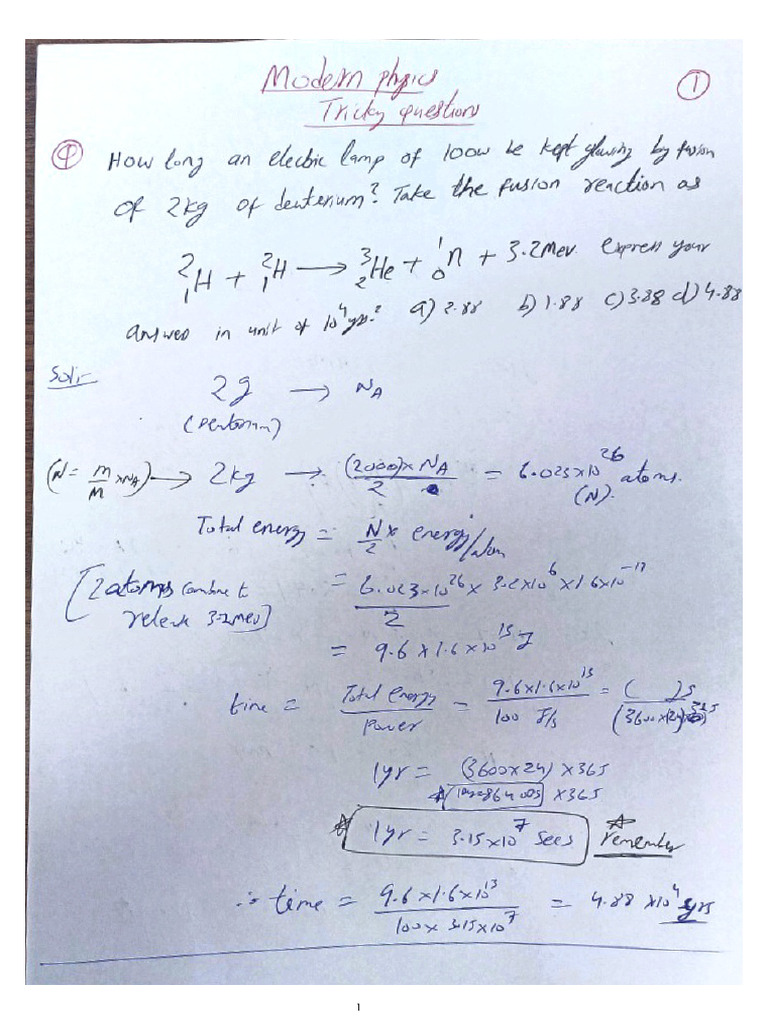 Modern physics
①
Tricky questions
Q How long an electric lamp of 100w be kept glowing by fusion
of 2kg of deuterium? Take the fusion reaction as
²₁H + ²₁H ⟶ ³₂He + ¹₀n + 3.2Mev. Express your
answer in unit of 10⁴yrs? a) 2.88 b) 1.88 c) 3.88 d) 4.88
Sol:-
2g ⟶ N_A
(Deuterium)
(N = m/M × N_A) ⟶ 2kg ⟶ (2000) × N_A / 2 = 6.023×10²⁶ atoms.
(N).
Total energy = N/2 × energy/atom
[2 atoms combine to
release 3.2 Mev]
= 6.023×10²⁶ / 2 × 3.2×10⁶ × 1.6×10⁻¹⁹
= 9.6 × 1.6 × 10¹³ J
time = Total energy / Power = 9.6×1.6×10¹³ / 100 J/s = ( )s / (3600×24)×365
1yr = (3600×24) × 365
86400s × 365
☆ 1yr = 3.15×10⁷ secs ☆ remember
∴ time = 9.6×1.6×10¹³ / 100 × 3.15×10⁷ = 4.88 ×10⁴ yrs
1